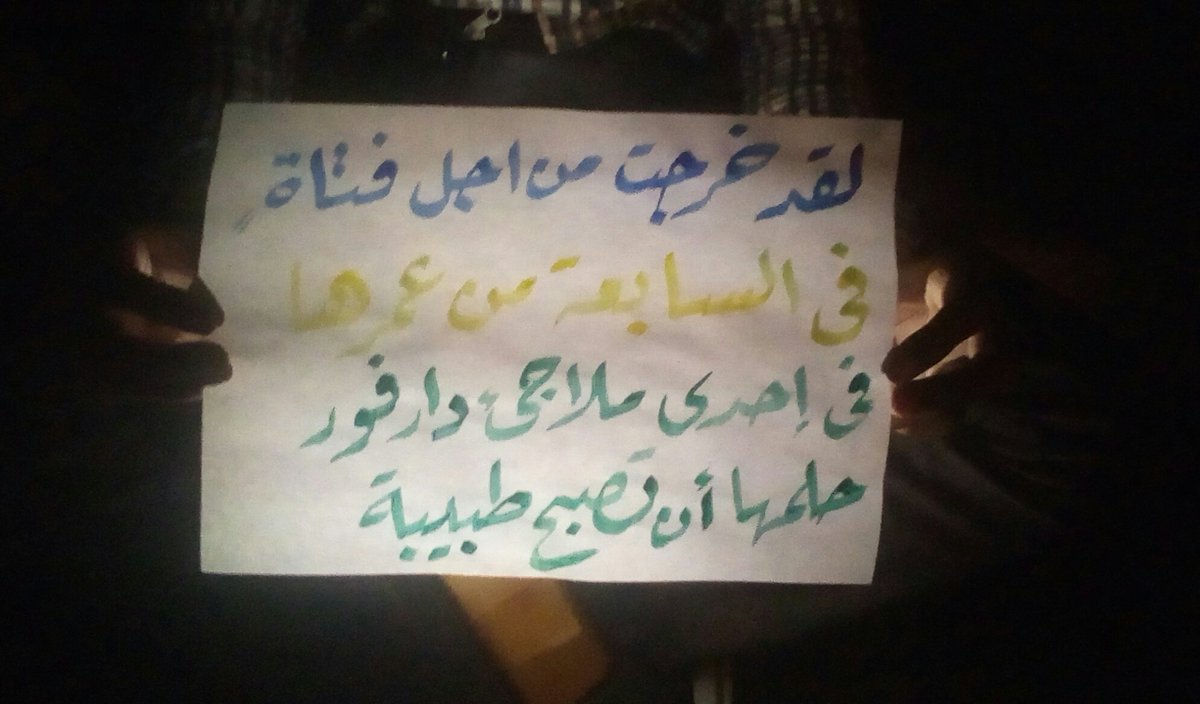 لقد خرجت من اجل فتاة
فى السابعة من عمرها
فى إحدى ملاجئ دارفور
حلمها أن تصبح طبيبة